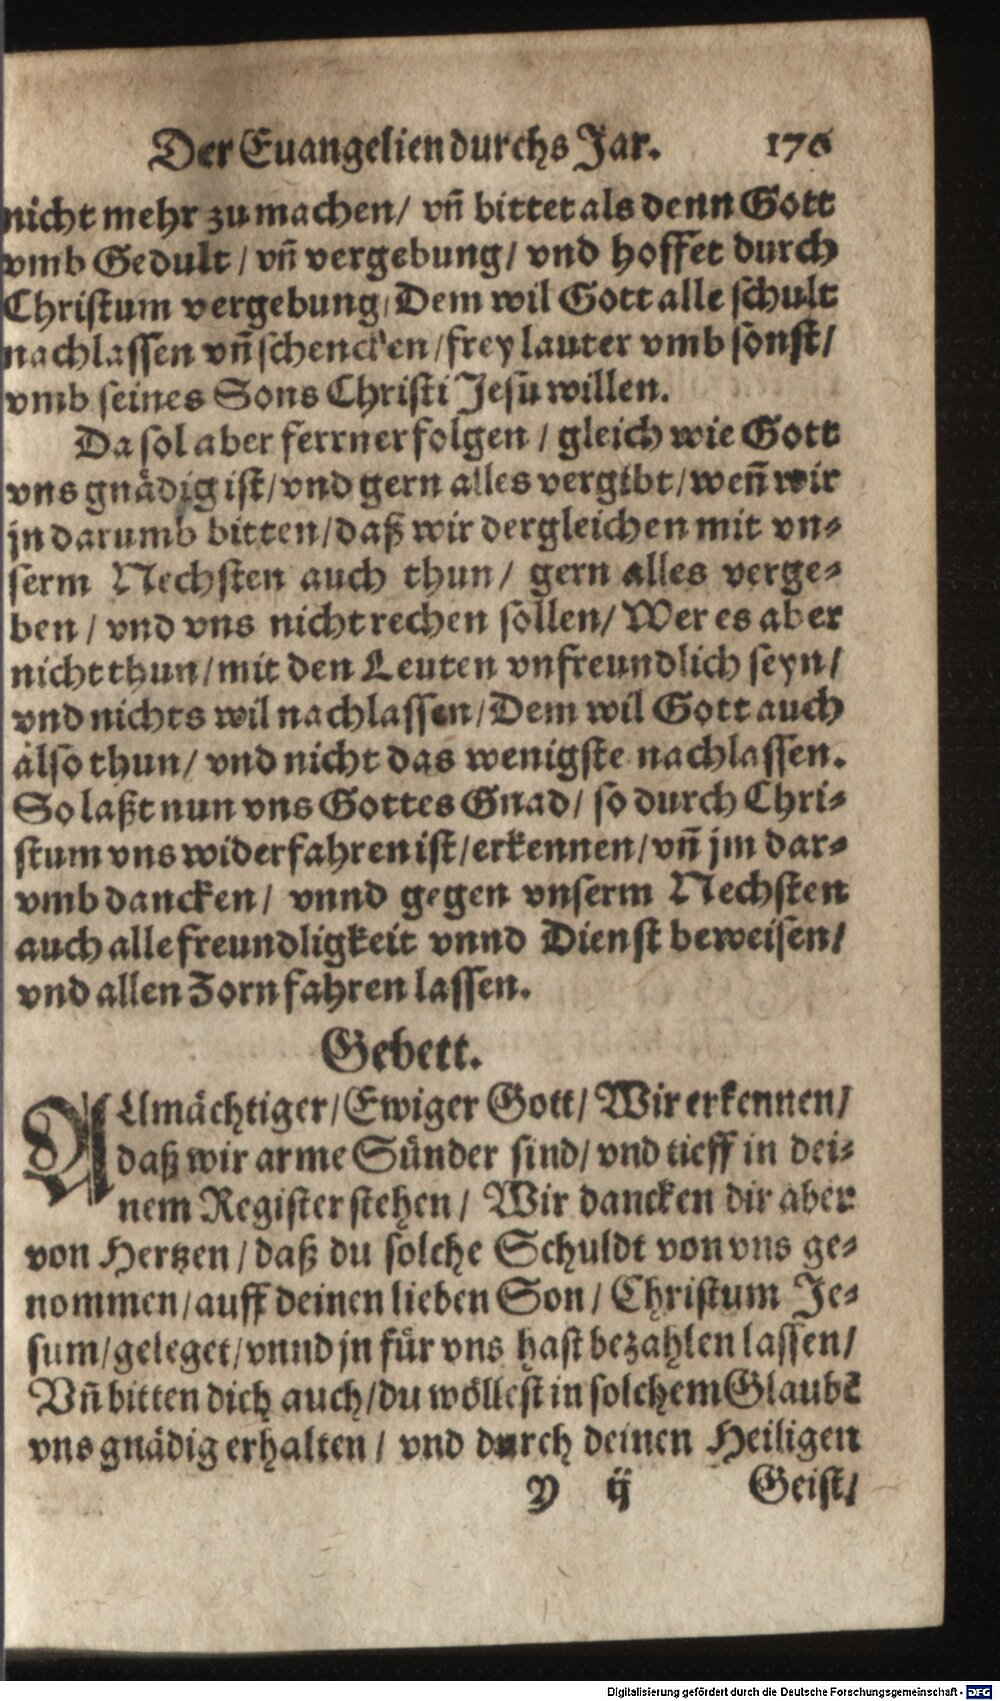 Der Euangelien durchs Jar. 176
nicht mehr zu machen/ vñ bittet als denn Gott
vmb Gedult/ vñ vergebung/ vnd hoffet durch
Christum vergebung/ Dem wil Gott alle schult
nachlassen vñ schencken/ frey lauter vmb sonst/
vmb seines Sons Christi Jesu willen.
Da sol aber ferrner folgen/ gleich wie Gott
vns gnädig ist/ vnd gern alles vergibt/ weñ wir
jn darumb bitten/ daß wir dergleichen mit vn-
serm Nechsten auch thun/ gern alles verge-
ben/ vnd vns nicht rechen sollen/ Wer es aber
nicht thun/ mit den Leuten vnfreundlich seyn/
vnd nichts wil nachlassen/ Dem wil Gott auch
also thun/ vnd nicht das wenigste nachlassen.
So laßt nun vns Gottes Gnad/ so durch Chri-
stum vns widerfahren ist/ erkennen/ vñ jm dar-
vmb dancken/ vnnd gegen vnserm Nechsten
auch alle freundligkeit vnnd Dienst beweisen/
vnd allen Zorn fahren lassen.
Gebett.
ALlmächtiger/ Ewiger Gott/ Wir erkennen/
daß wir arme Sünder sind/ vnd tieff in dei-
nem Register stehen/ Wir dancken dir aber
von Hertzen/ daß du solche Schuldt von vns ge-
nommen/ auff deinen lieben Son/ Christum Je-
sum/ geleget/ vnnd jn für vns hast bezahlen lassen/
Vñ bitten dich auch/ du wöllest in solchem Glaubē
vns gnädig erhalten/ vnd durch deinen Heiligen
Y ij Geist/
Digitalisierung gefördert durch die Deutsche Forschungsgemeinschaft - DFG